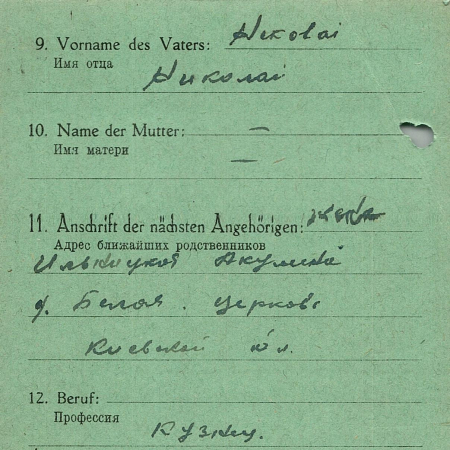 9. Vorname des Vaters: Nikolai
Имя отца
Николаі
10. Name der Mutter: —
Имя матери
—
11. Anschrift der nächsten Angehörigen: жена
Адрес ближайших родственников
Ильницкая Акулина
Белая церковь
Киевской
12. Beruf:
Профессия
Кузнец.